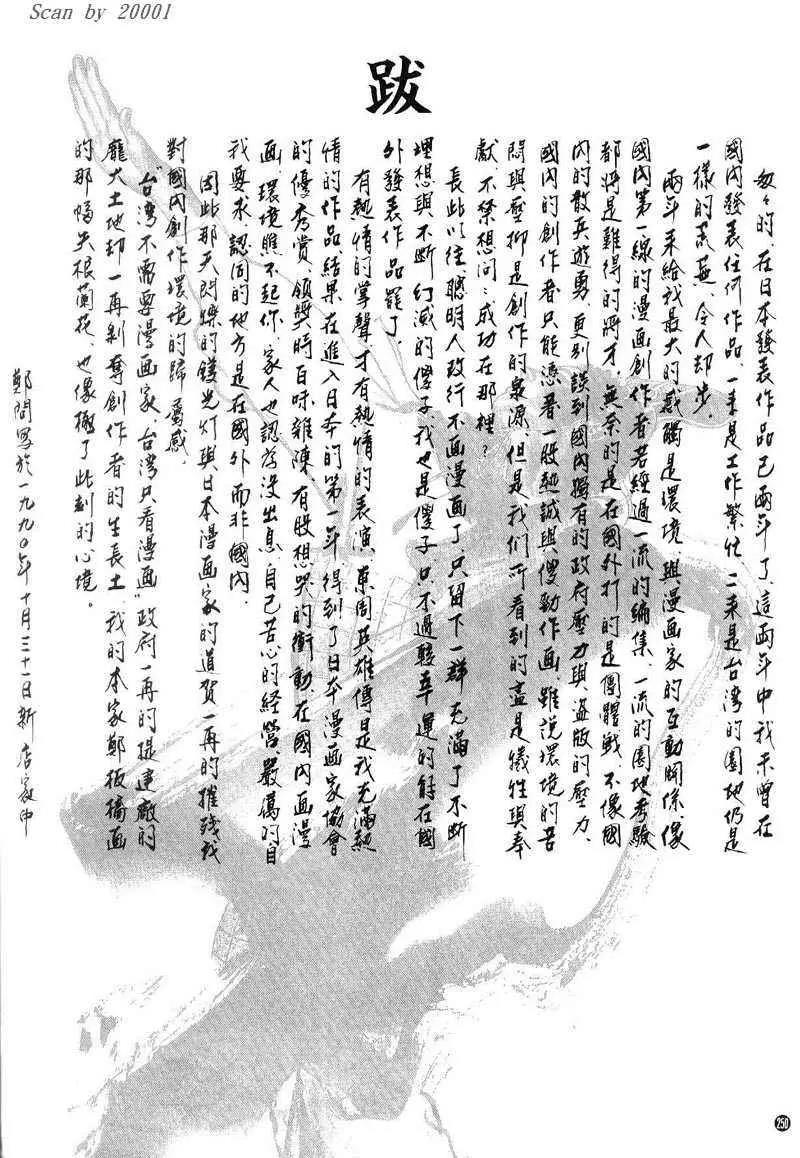 Scan by 20001
跋
匆々的，在日本發表作品已兩年了，這兩年中我未曾在
國內發表任何作品，一來是工作繁忙，二來是台湾的園地仍是
一樣的荒蕪，令人却步。
兩年來給我最大的感觸是環境，與漫画家的互動關係，像
國內第一線的漫画創作者若經過一流的編集、一流的園地考驗
都將是難得的將才，無奈的是在國外打的是團體戰，不像國
內的散兵遊勇，更別談到國內獨有的政府壓力與盜版的壓力，
國內的創作者只能憑着一股熱誠與傻勁作画，雖說環境的苦
悶與壓抑是創作的泉源，但是我們所看到的盡是犧牲與奉
獻，不禁想問：成功在那裡？
長此以往，聰明人改行不画漫画了，只留下一群充滿了不斷
理想與不斷幻滅的傻子，我也是傻子，只不過較幸運的能在國
外發表作品罷了。
有熱情的掌聲，才有熱情的表演，東周英雄傳是我充滿熱
情的作品，結果在進入日本的第一年，得到了日本漫画家協會
的優秀賞，領獎時百味雜陳，有股想哭的衝動，在國內画漫
画，環境瞧不起你，家人也認為沒出息，自己苦心的經營、嚴厲的自
我要求，認同的地方是在國外而非國內，
因此那天閃爍的鎂光灯與日本漫画家的道賀一再的摧殘我
對國內創作環境的歸屬感，
“台湾不需要漫画家，台湾只看漫画”政府一再的提建廠的
龐大土地却一再剝奪創作者的生長土，我的本家鄭板橋画
的那幅失根蘭花，也像極了此刻的心境。
鄭問寫於一九九〇年十月三十一日新店家中
250